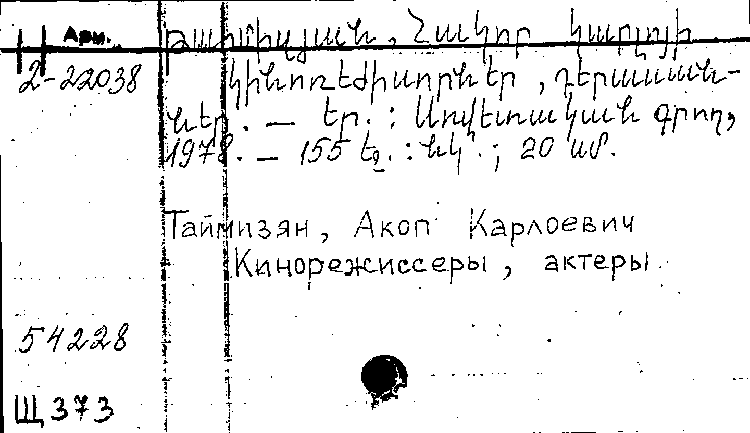 Арм.
Թայմիզյան, Հակոբ Կառլոյի
2-22038
Կինոռեժիսորներ, դերասան-
ներ. — Եր. : Սովետական գրող,
1978. — 155 էջ. : նկ. ; 20 սմ.
Таймизян, Акоп Карлоевич
Кинорежиссеры, актеры
54228
Щ373